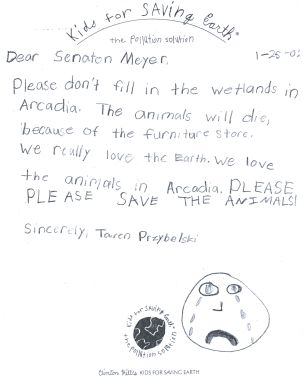 Kids for SAVING Earth®
the pollution solution
Dear Senator Meyer,
1-25-02
Please don't fill in the wetlands in
Arcadia. The animals will die,
because of the furniture store.
We really love the Earth. We love
the animals in Arcadia. PLEASE
PLEASE SAVE THE ANIMALS!
Sincerely, Taren Przybelski
Kids for SAVING Earth
the pollution solution
KIDS FOR SAVING EARTH